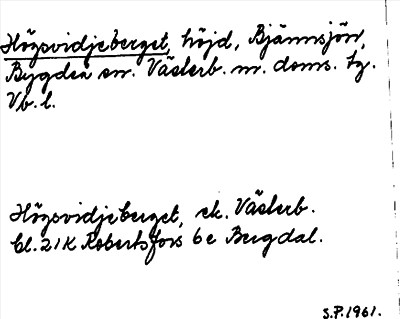 Högsvidjeberget, höjd, Bjännsjön,
Bygdeå sn. Västerb. n. doms. tg.
Vb. l.
Högsvidjeberget, ek. Västerb.
bl. 21K Robertsfors 6e Bergdal.
S.P. 1961.